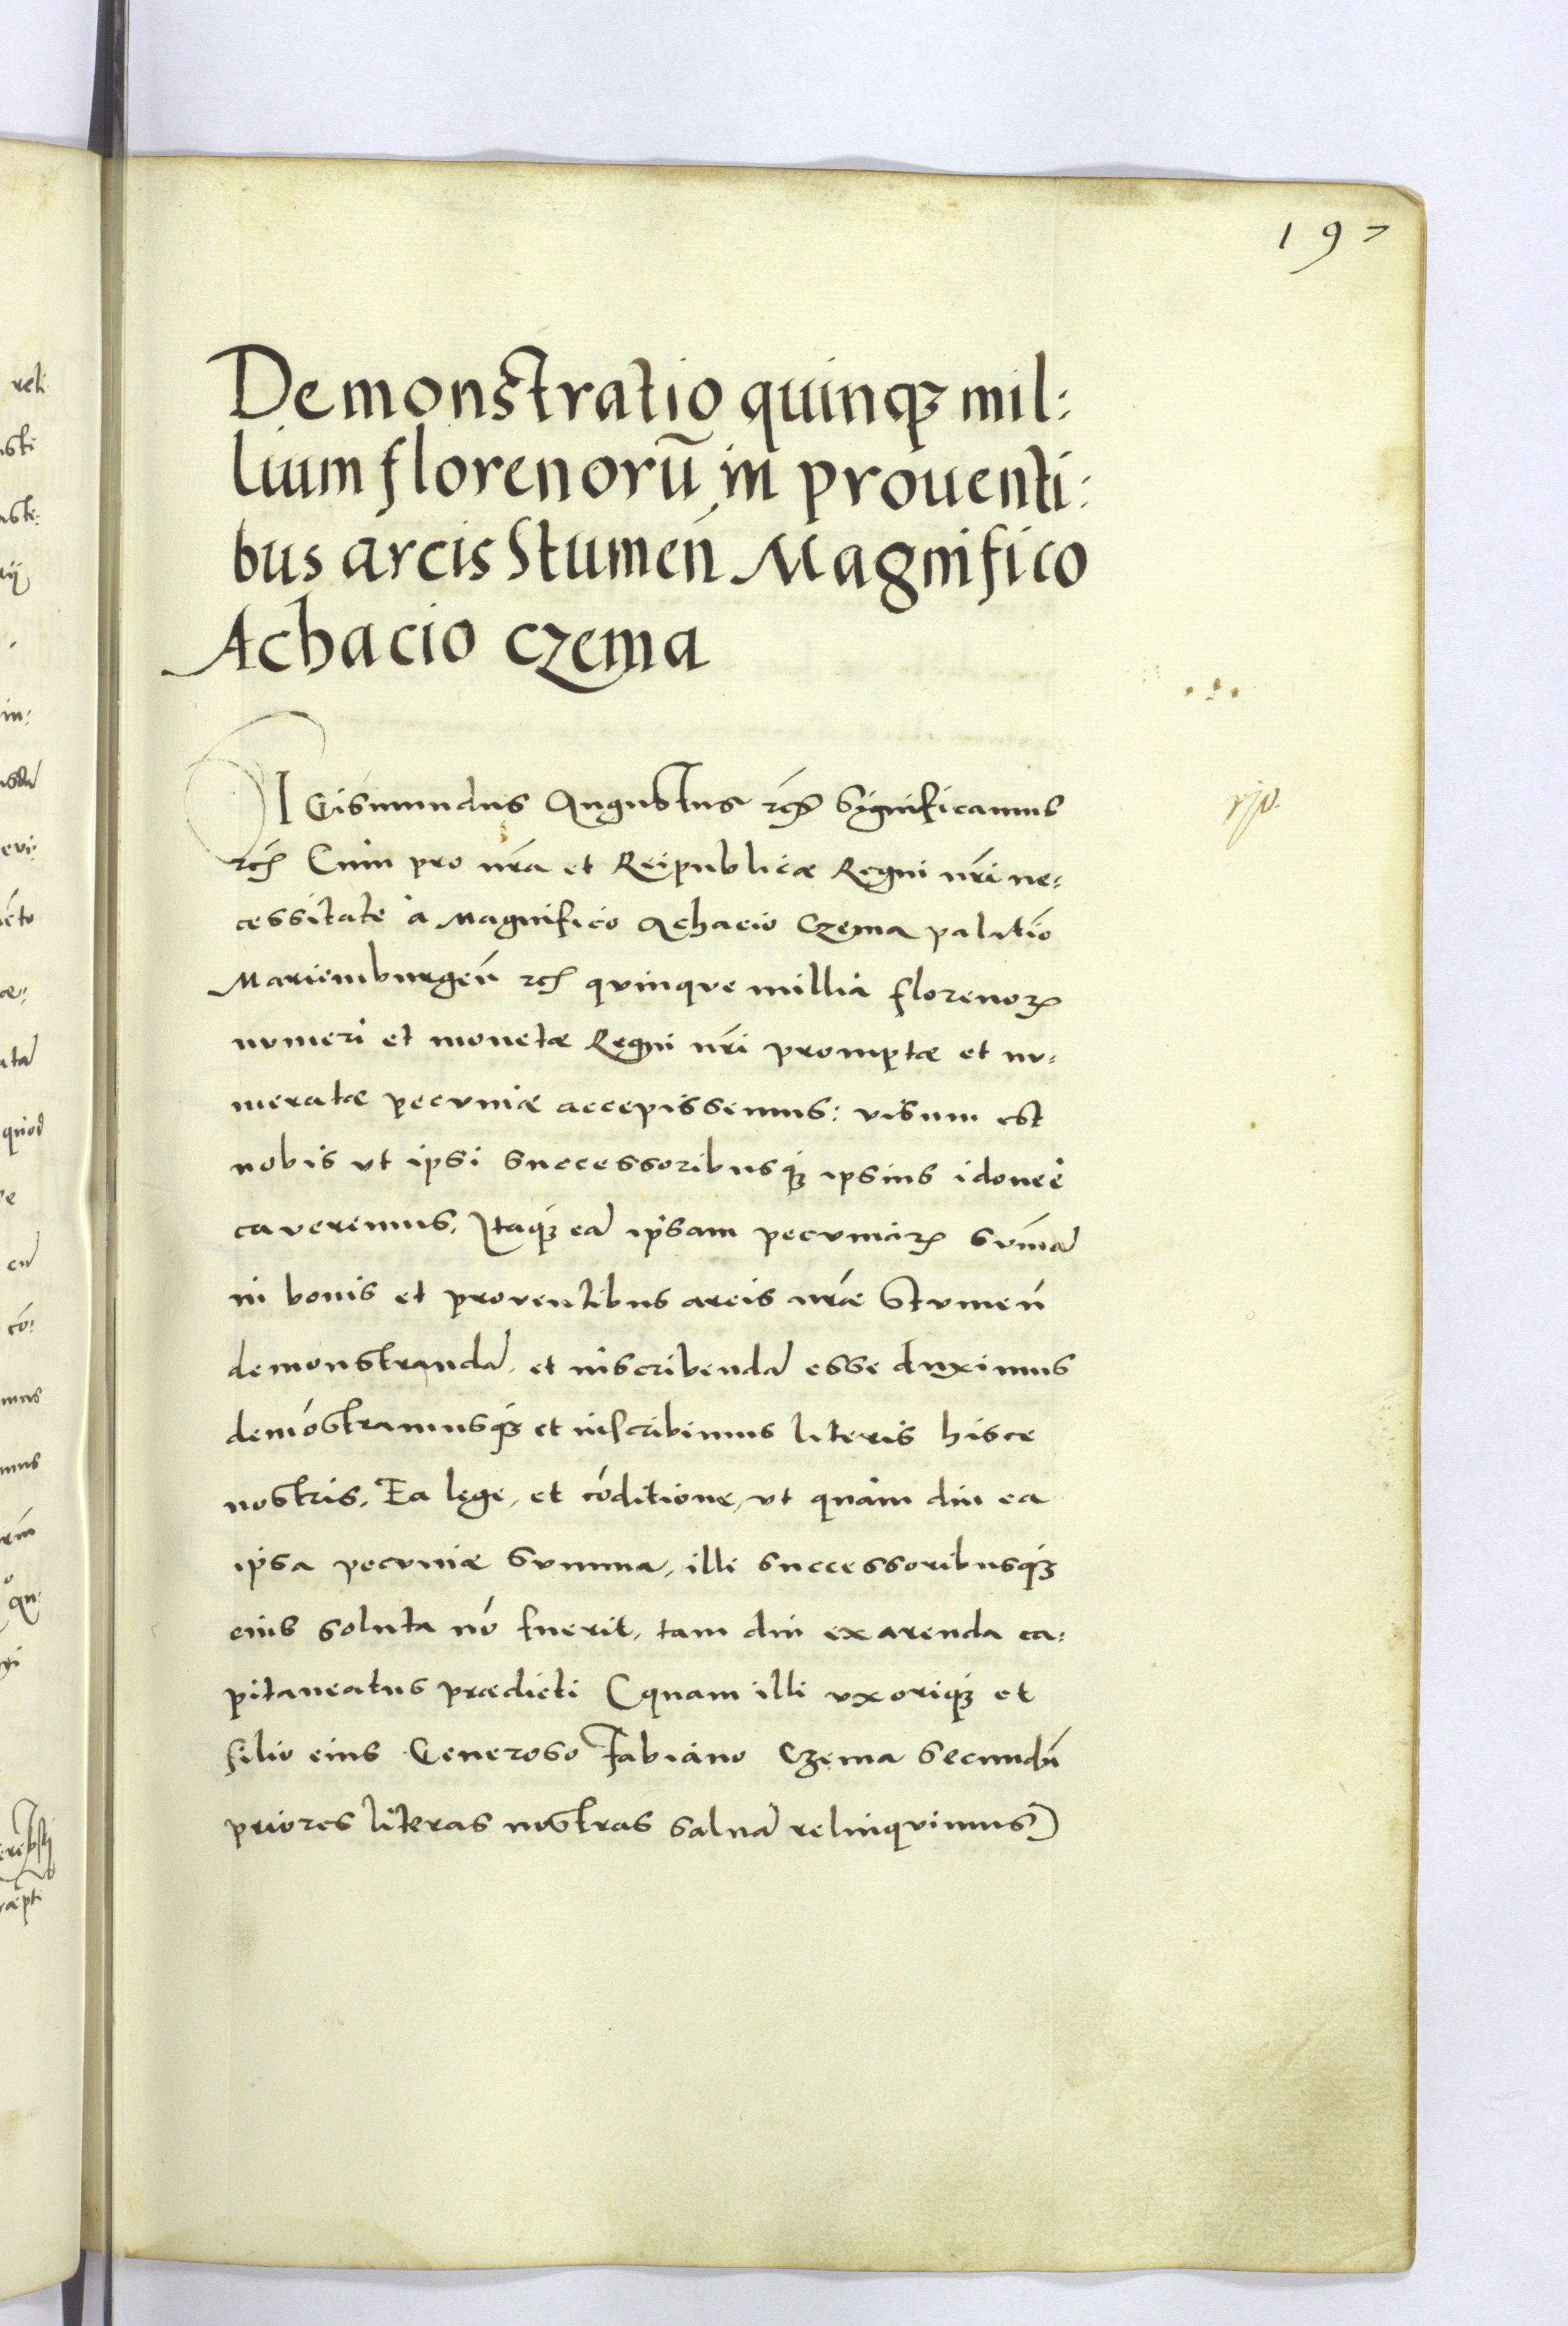 197
Demonstratio quinqꝫ mil:
lium florenorū in prouenti:
bus arcis Stumeń Magnifico
Achacio Czema
SIGismundus Augustus rcꝭ Significamus
rcꝭ Cum pro nr̄a et Reipublicæ Regni nr̄i ne,
cessitate à Magnifico Achacio Czema palatīo
Mariemburgeń rcꝭ quinque millia florenoꝝ
numeri et monetæ Regni nr̄i promptæ et nu,
meratæ pecuniæ accepissemus: visum est
nobis vt ipsi successoribusqꝫ ipsius idoneè
caveremus. Itaqꝫ eā ipsam pecuniaꝝ sum̄ā
in bonis et proventibus arcis nr̄æ Stumeń
demonstrandā, et inscribendā esse duximus
demōstramusqꝫ et inscribimus literis hisce
nostris. Ea lege, et cōditione, vt quàm diu ea
ipsa pecuniæ summa, illi successoribusqꝫ
eius soluta nō fuerit, tam diu ex arenda ca,
pitaneatus prædicti (quam illi vxoriqꝫ et
filio eius Generoso Fabiano Czema secundū
priores literas nostras saluā relinquimus)
reli
quod